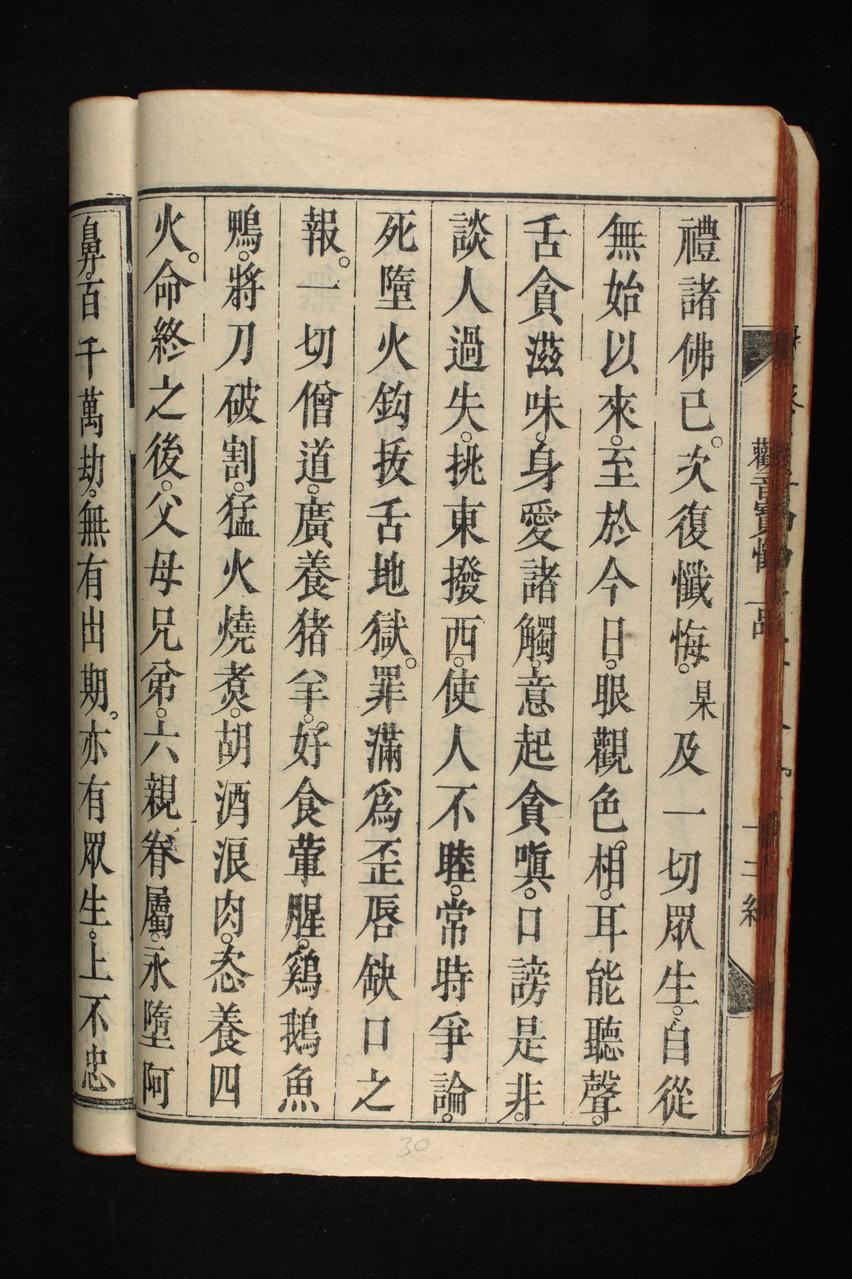 觀音寶懺
禮諸佛已。次復懺悔。某及一切眾生。自從
無始以來。至於今日。眼觀色相。耳能聽聲。
舌貪滋味。身愛諸觸。意起貪嗔。口謗是非。
談人過失。挑東撥西。使人不睦。常時爭論。
死墮火鈎抜舌地獄。罪滿爲歪唇缺口之
報。一切僧道。廣養猪羊。好食葷腥。鷄鵝魚
鴨。將刀破割。猛火燒煑。胡酒浪肉。恣養四
火。命終之後。父母兄弟。六親眷屬。永墮阿
鼻。百千萬劫。無有出期。亦有眾生。上不忠
30